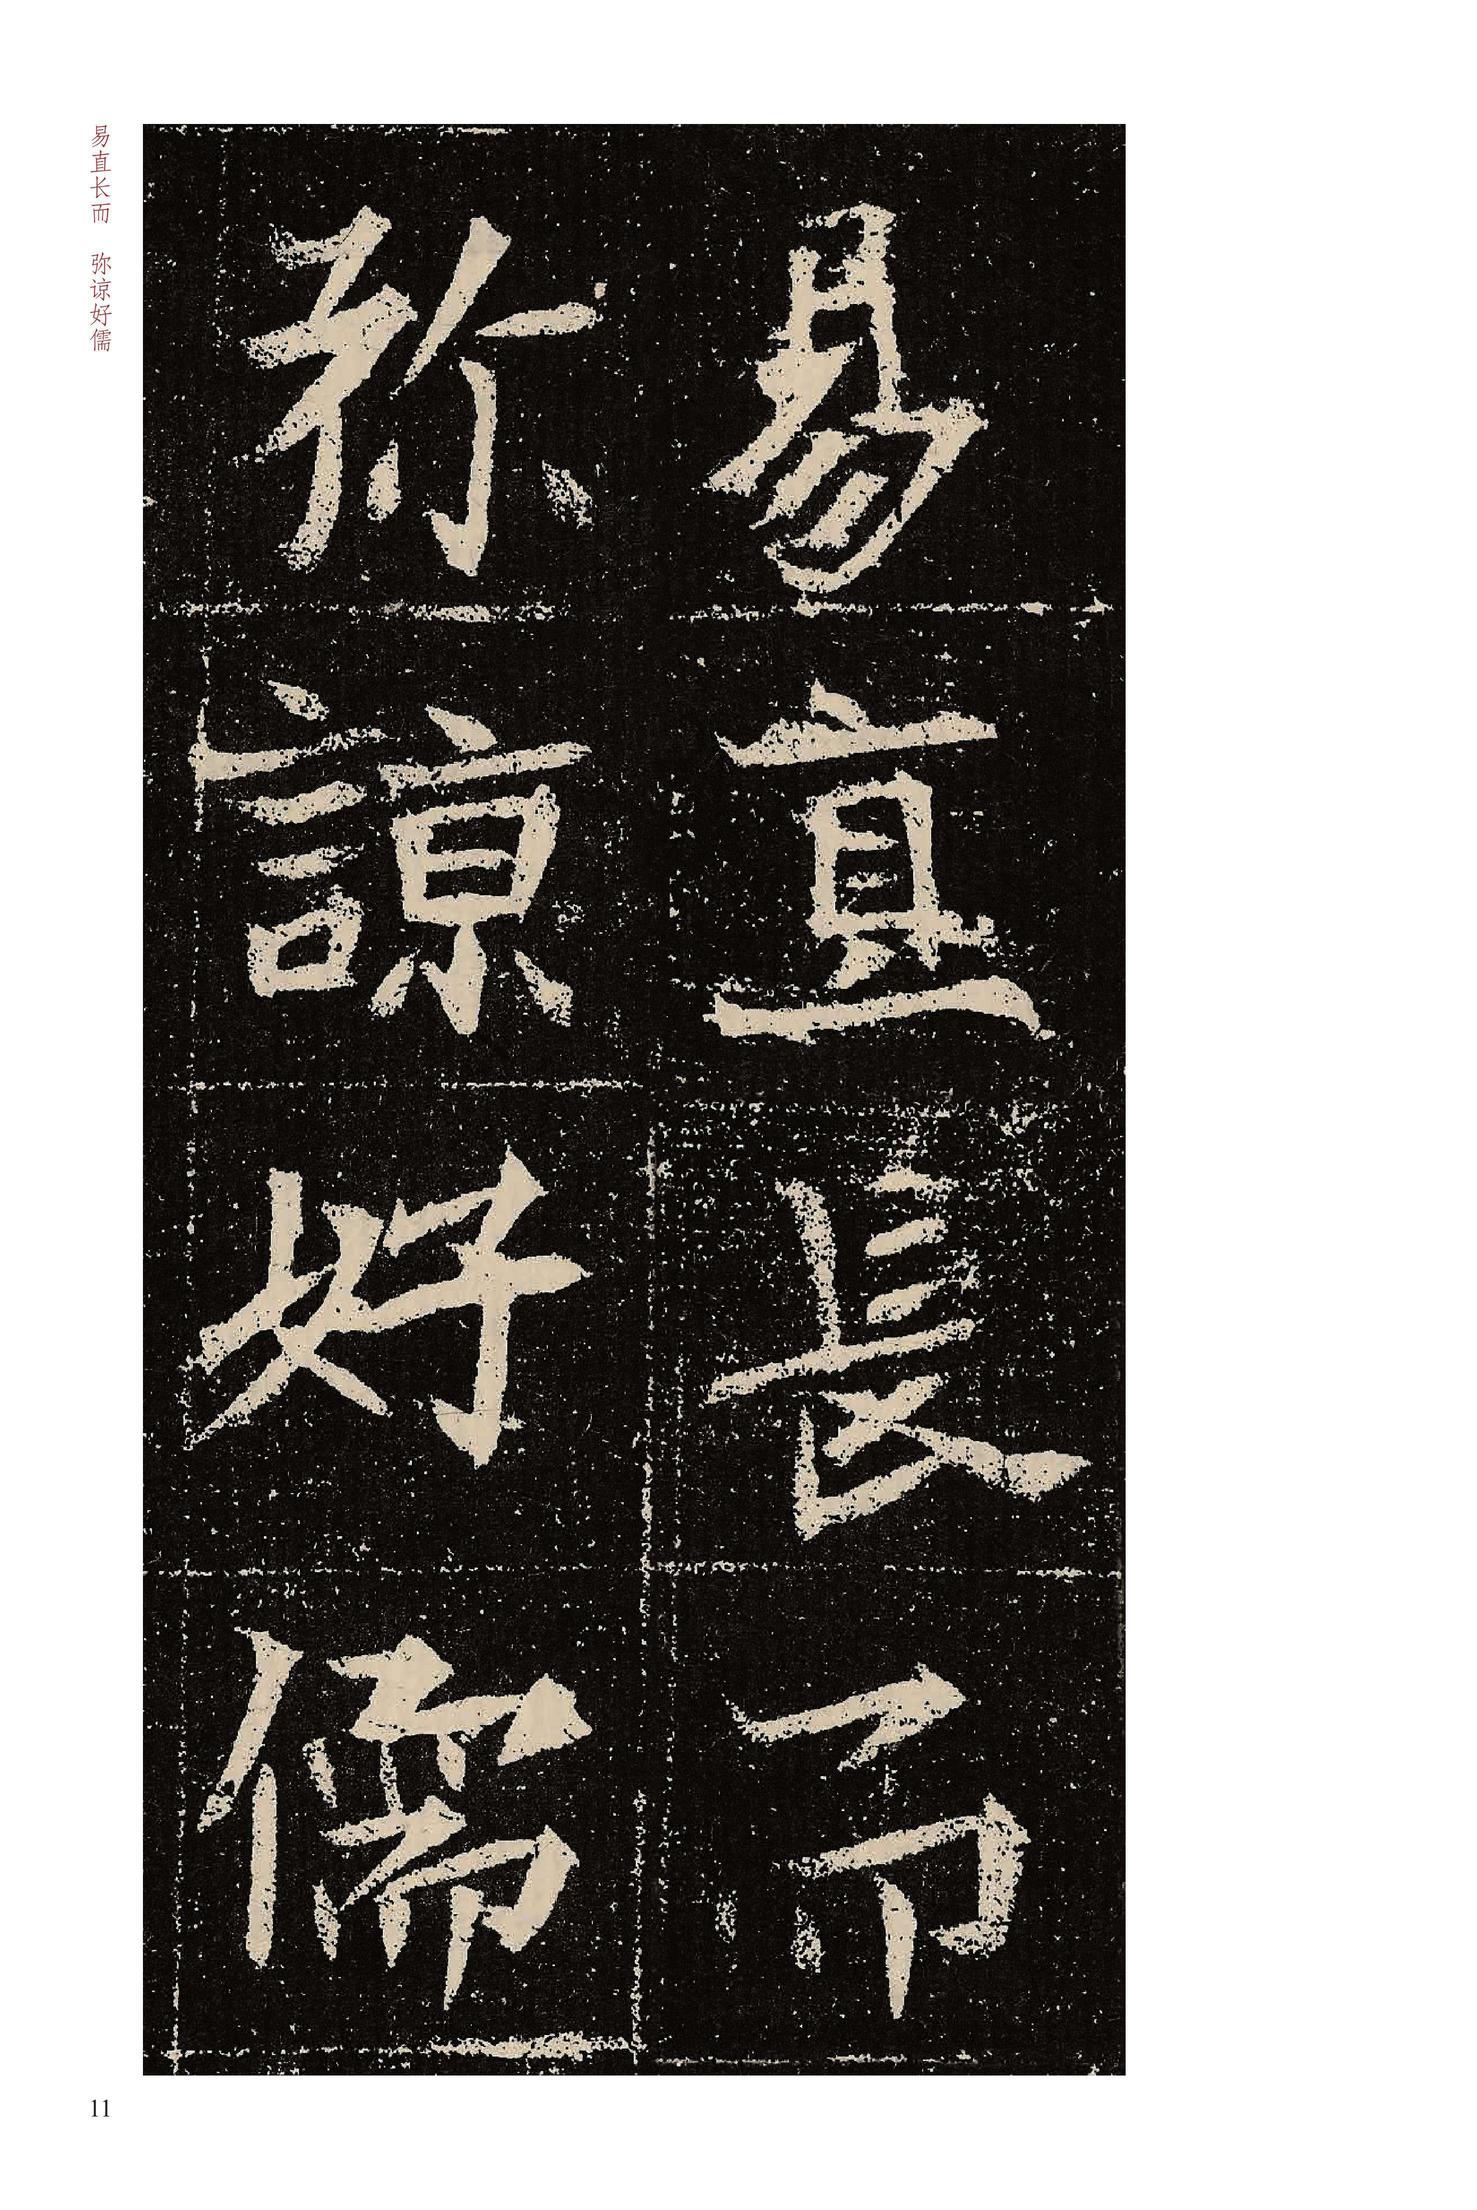 易直長而
弥諒好儒
易直长而 弥谅好儒
11